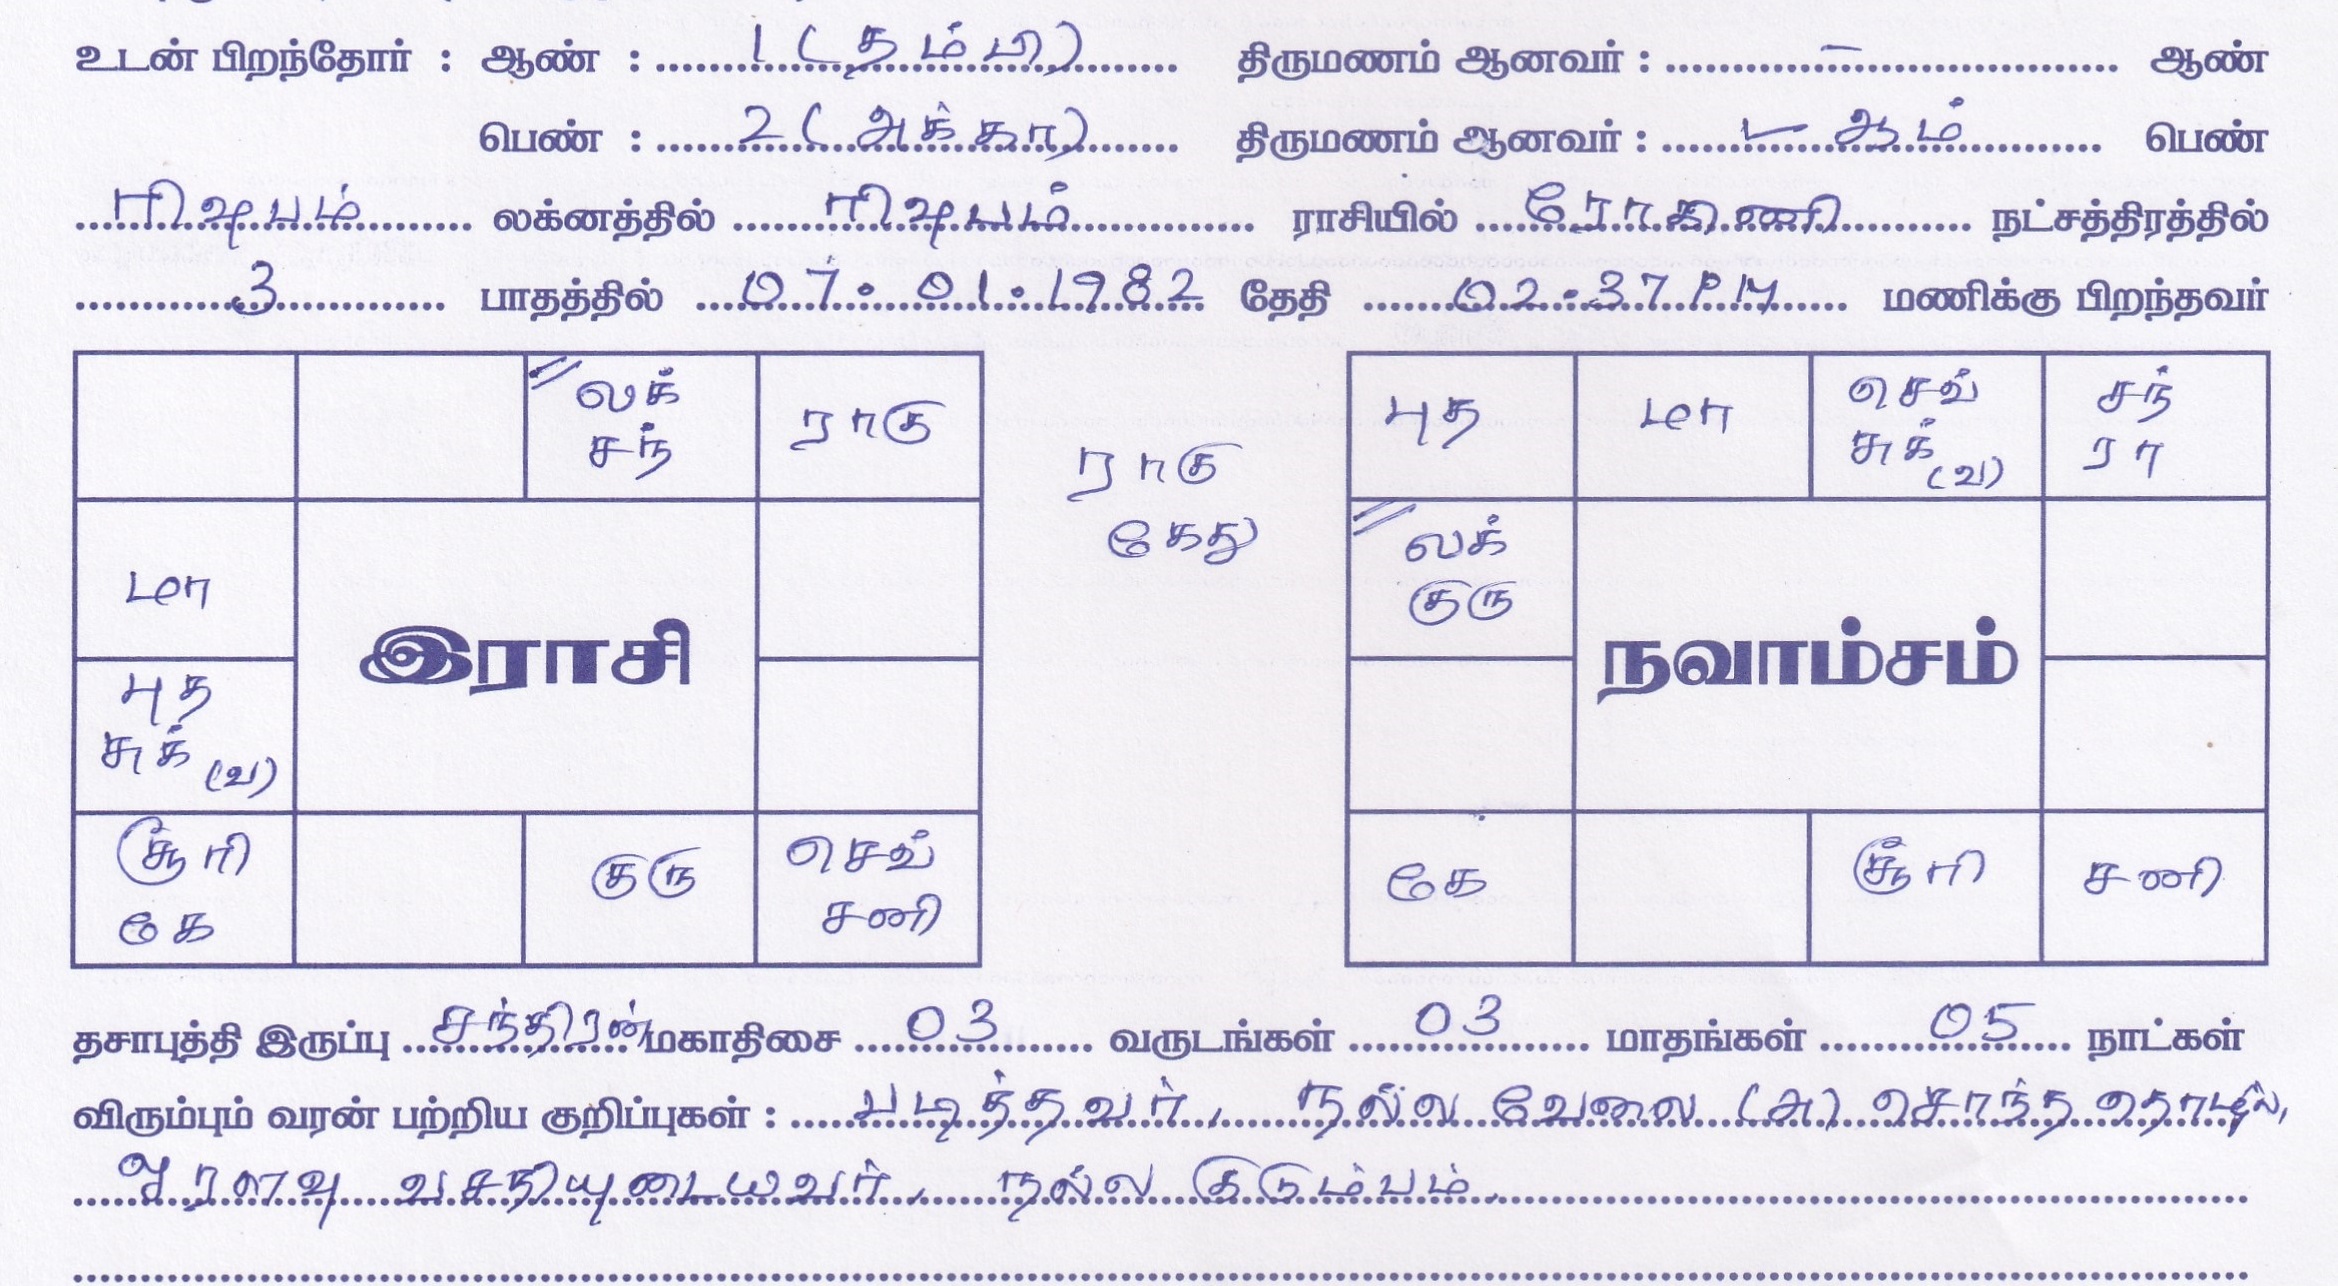 உடன் பிறந்தோர் : ஆண் : 1 (தம்பி) திருமணம் ஆனவர் : – ஆண்
பெண் : 2 (அக்கா) திருமணம் ஆனவர் : ஆம் பெண்
ரிஷபம் லக்னத்தில் ரிஷபம் ராசியில் ரோகிணி நட்சத்திரத்தில்
3 பாதத்தில் 07.01.1982 தேதி 02.37 PM மணிக்கு பிறந்தவர்
லக் ராகு
சந்
மா
புத
சுக் (வ)
சூரி குரு செவ்
கே சனி
இராசி
ராகு
கேது
புத மா செவ் சந்
சுக் (வ) ரா
லக்
குரு
நவாம்சம்
கே சூரி சனி
தசாபுத்தி இருப்பு சந்திரன் மகாதிசை 03 வருடங்கள் 03 மாதங்கள் 05 நாட்கள்
விரும்பும் வரன் பற்றிய குறிப்புகள் : படித்தவர், நல்ல வேலை (அ) சொந்த தொழில்,
ஓரளவு வசதியுடையவர், நல்ல குடும்பம்.